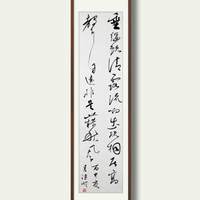 垂緌飲清露流响出疏桐居高
聲自远非是藉秋風